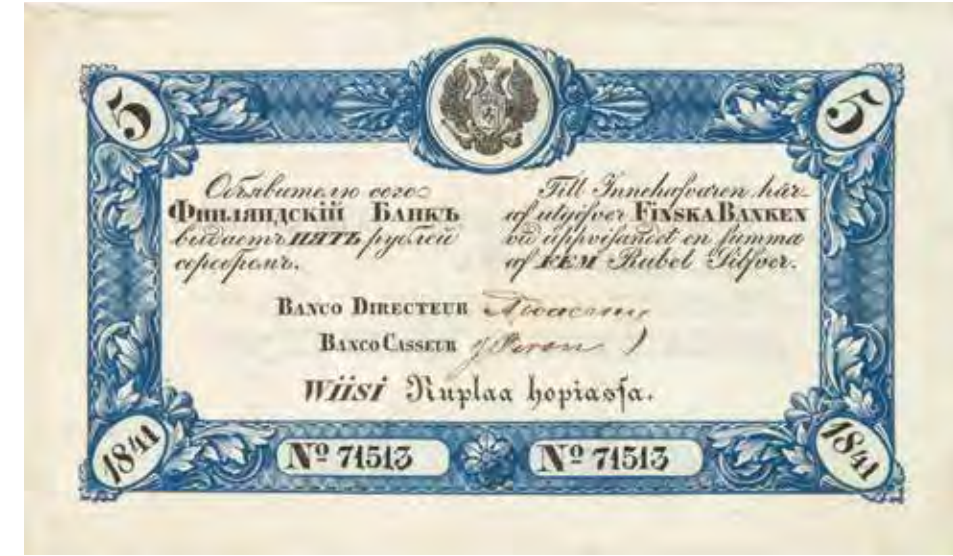 5 5
Объявителю сего
Финляндскій Банкъ
выдаетъ ПЯТЬ рублей
серебромъ.
Till Innehafvaren här-
af utgifver FINSKA BANKEN
vid uppvisandet en summa
af FEM Rubel Silfver.
BANCO DIRECTEUR
BANCO CASSEUR
Wiisi Ruplaa hopiassa.
1841 Nº 71513 Nº 71513 1841